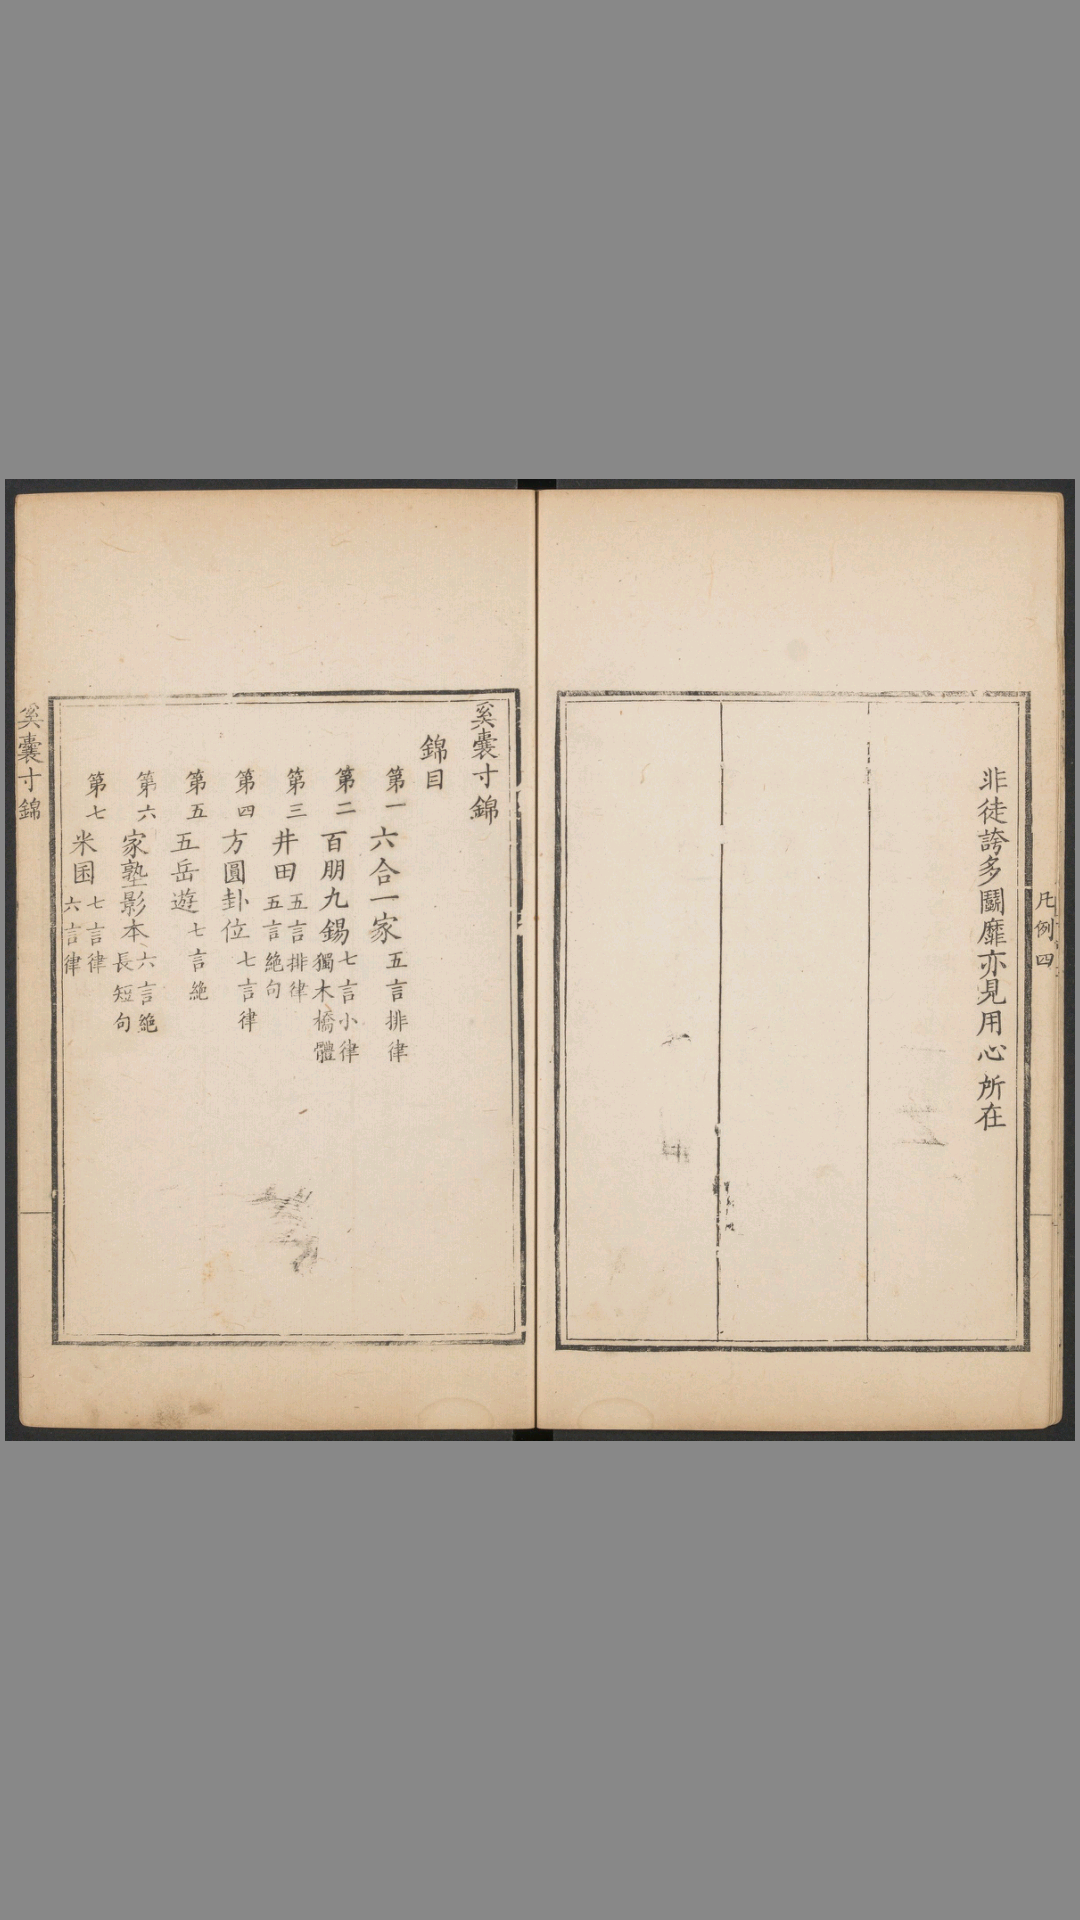 非徒誇多鬬靡亦見用心所在
凡例四
奚囊寸錦
錦目
第一 六合一家 五言排律
第二 百朋九錫 七言小律 獨木橋體
第三 井田 五言排律 五言絶句
第四 方圓卦位 七言律
第五 五岳遊 七言絶
第六 家塾影本 六言絶 長短句
第七 米囯 七言律 六言律
奚囊寸錦